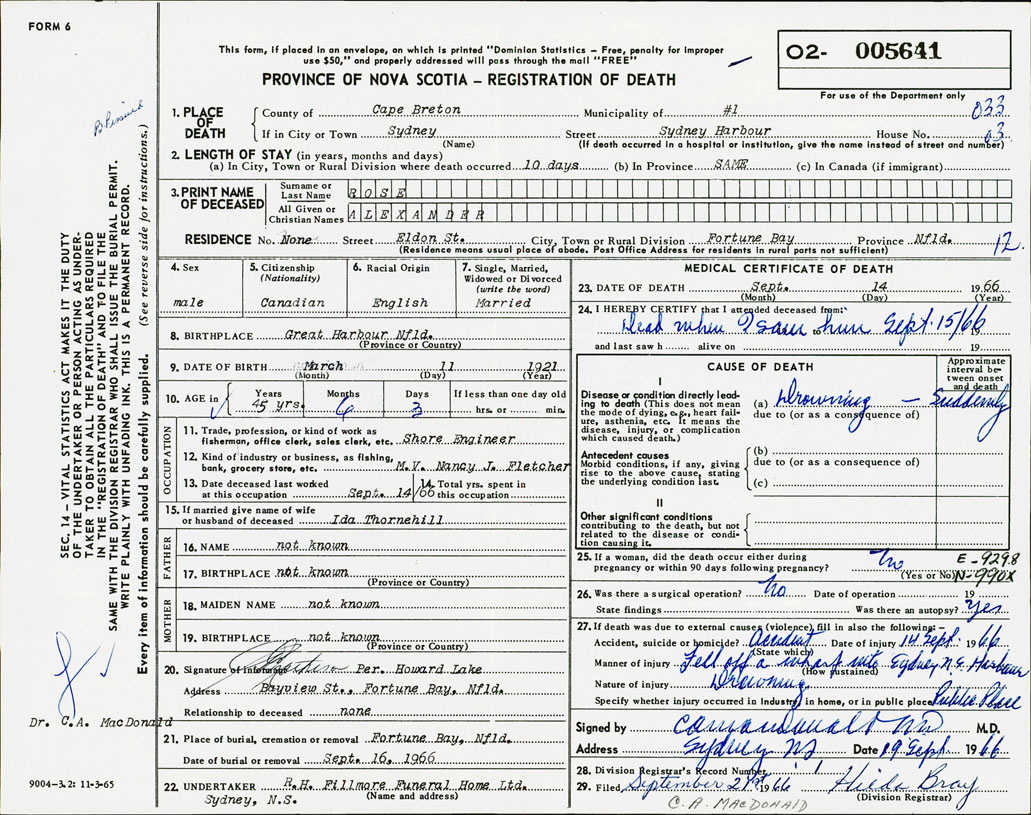 FORM 6
This form, if placed in an envelope, on which is printed "Dominion Statistics – Free, penalty for improper
use $50," and properly addressed will pass through the mail "FREE"
PROVINCE OF NOVA SCOTIA – REGISTRATION OF DEATH
02- 005641
For use of the Department only
SEC. 14 – VITAL STATISTICS ACT MAKES IT THE DUTY
OF THE UNDERTAKER OR PERSON ACTING AS UNDER-
TAKER TO OBTAIN ALL THE PARTICULARS REQUIRED
IN THE "REGISTRATION OF DEATH" AND TO FILE THE
SAME WITH THE DIVISION REGISTRAR WHO SHALL ISSUE THE BURIAL PERMIT.
WRITE PLAINLY WITH UNFADING INK. THIS IS A PERMANENT RECORD.
Every item of information should be carefully supplied. (See reverse side for instructions.)
1. PLACE OF DEATH County of Cape Breton Municipality of #1 033
If in City or Town Sydney Street Sydney Harbour House No. 03
(Name) (If death occurred in a hospital or institution, give the name instead of street and number)
2. LENGTH OF STAY (in years, months and days)
(a) In City, Town or Rural Division where death occurred 10 days (b) In Province SAME (c) In Canada (if immigrant)
3. PRINT NAME OF DECEASED Surname or Last Name ROSE
All Given or Christian Names ALEXANDER
RESIDENCE No. None Street Eldon St. City, Town or Rural Division Fortune Bay Province Nfld. 12
(Residence means usual place of abode. Post Office Address for residents in rural parts not sufficient)
4. Sex male
5. Citizenship (Nationality) Canadian
6. Racial Origin English
7. Single, Married, Widowed or Divorced (write the word) Married
8. BIRTHPLACE Great Harbour Nfld.
(Province or Country)
9. DATE OF BIRTH March 11 1921
(Month) (Day) (Year)
10. AGE in Years 45 yrs. Months 6 Days 3 If less than one day old hrs. or min.
OCCUPATION
11. Trade, profession, or kind of work as
fisherman, office clerk, sales clerk, etc. Shore Engineer
12. Kind of industry or business, as fishing,
bank, grocery store, etc. M.V. Nancy J. Fletcher
13. Date deceased last worked at this occupation Sept. 14/66
14. Total yrs. spent in this occupation
15. If married give name of wife
or husband of deceased Ida Thornehill
FATHER
16. NAME not known
17. BIRTHPLACE not known
(Province or Country)
MOTHER
18. MAIDEN NAME not known
19. BIRTHPLACE not known
(Province or Country)
20. Signature of informant Per. Howard Lake
Address Bayview St., Fortune Bay, Nfld.
Relationship to deceased none
21. Place of burial, cremation or removal Fortune Bay, Nfld.
Date of burial or removal Sept. 16, 1966
22. UNDERTAKER R.H. Fillmore Funeral Home Ltd.
Sydney, N.S. (Name and address)
Dr. C.A. MacDonald
9004–3.2: 11-3-65
MEDICAL CERTIFICATE OF DEATH
23. DATE OF DEATH Sept. 14 1966
(Month) (Day) (Year)
24. I HEREBY CERTIFY that I attended deceased from:
Dead when I saw him Sept. 15/66 19
and last saw h alive on 19
CAUSE OF DEATH
Approximate interval between onset and death
I
Disease or condition directly leading to death (This does not mean the mode of dying, e.g., heart failure, asthenia, etc. It means the disease, injury, or complication which caused death.)
(a) Drowning – Suddenly
due to (or as a consequence of)
Antecedent causes
Morbid conditions, if any, giving rise to the above cause, stating the underlying condition last.
(b)
due to (or as a consequence of)
(c)
II
Other significant conditions
contributing to the death, but not related to the disease or condition causing it.
25. If a woman, did the death occur either during
pregnancy or within 90 days following pregnancy? No
(Yes or No)
E-929.8
N-990X
26. Was there a surgical operation? No Date of operation 19
State findings Was there an autopsy? Yes
27. If death was due to external causes (violence) fill in also the following:–
Accident, suicide or homicide? Accident Date of injury 14 Sept. 1966
(State which)
Manner of injury Fell off a wharf into Sydney N.S. Harbour
(How sustained)
Nature of injury Drowning
Specify whether injury occurred in industry, in home, or in public place Public Place
Signed by C A MacDonald MD M.D.
Address Sydney NS Date 19 Sept 1966
28. Division Registrar's Record Number
29. Filed September 21st 1966 Hilda Bray
(Division Registrar)
C. A. MACDONALD